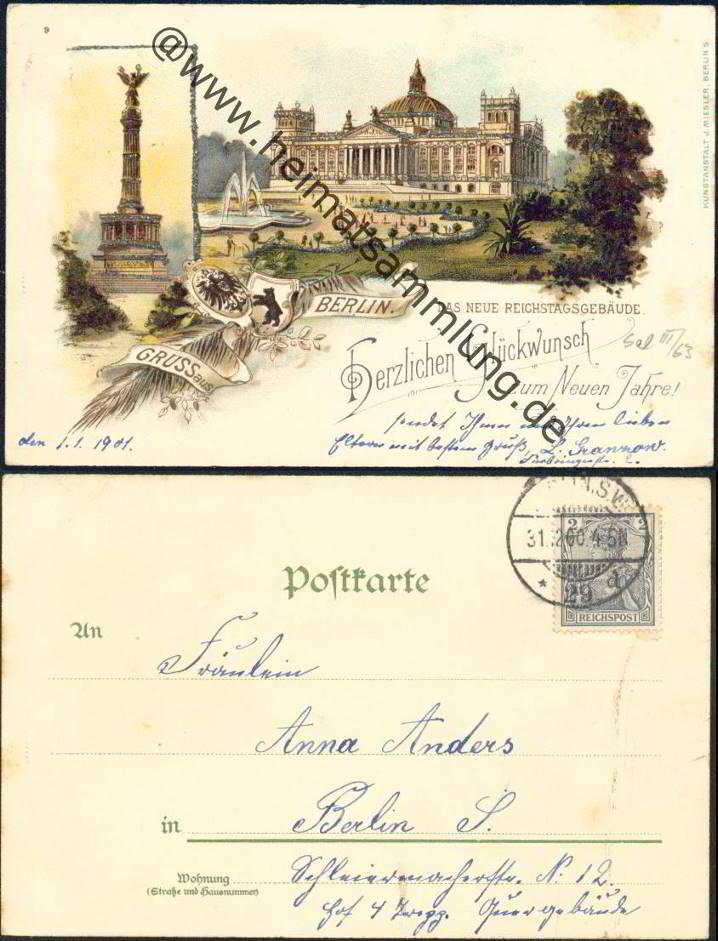 9
@www.heimatsammlung.de
KUNSTANSTALT J. MIESLER, BERLIN S.
BERLIN.
DAS NEUE REICHSTAGSGEBÄUDE.
GRUSS aus
Herzlichen Glückwunsch
zum Neuen Jahre!
III/63
sendet Ihnen und Ihren lieben
den 1.1.1901. Eltern mit bestem Gruß, L.
S.W.
31.12.00. 4-5N
* 29 d
2 2
REICHSPOST
Postkarte
An
Fräulein
Anna Anders
in Berlin S.
Wohnung Schleiermacherstr. N: 12.
(Straße und Hausnummer)
Hof 4 Trepp. Quergebäude